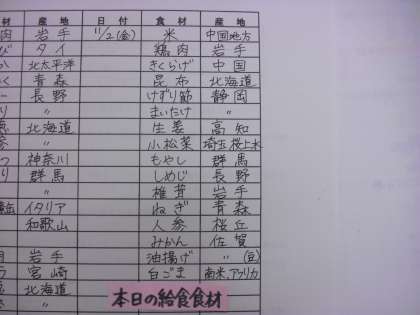 材 産地 日付 食材 産地
肉 岩手 11/2(金) 米 中国地方
び タイ 鶏肉 岩手
か 北太平洋 きくらげ 中国
く 青森 昆布 北海道
ー 長野 けずり節 静岡
り 〃 まいたけ 〃
北海道 生姜 高知
参 〃 小松菜 埼玉桜上水
つ 神奈川 もやし 群馬
り 群馬 しめじ 長野
〃 椎茸 岩手
缶 イタリア ねぎ 青森
和歌山 人参 桜丘
みかん 佐賀
岩手 油揚げ 〃(豆)
う 宮崎 白ごま 南米、アフリカ
北海道
参 〃
本日の給食食材